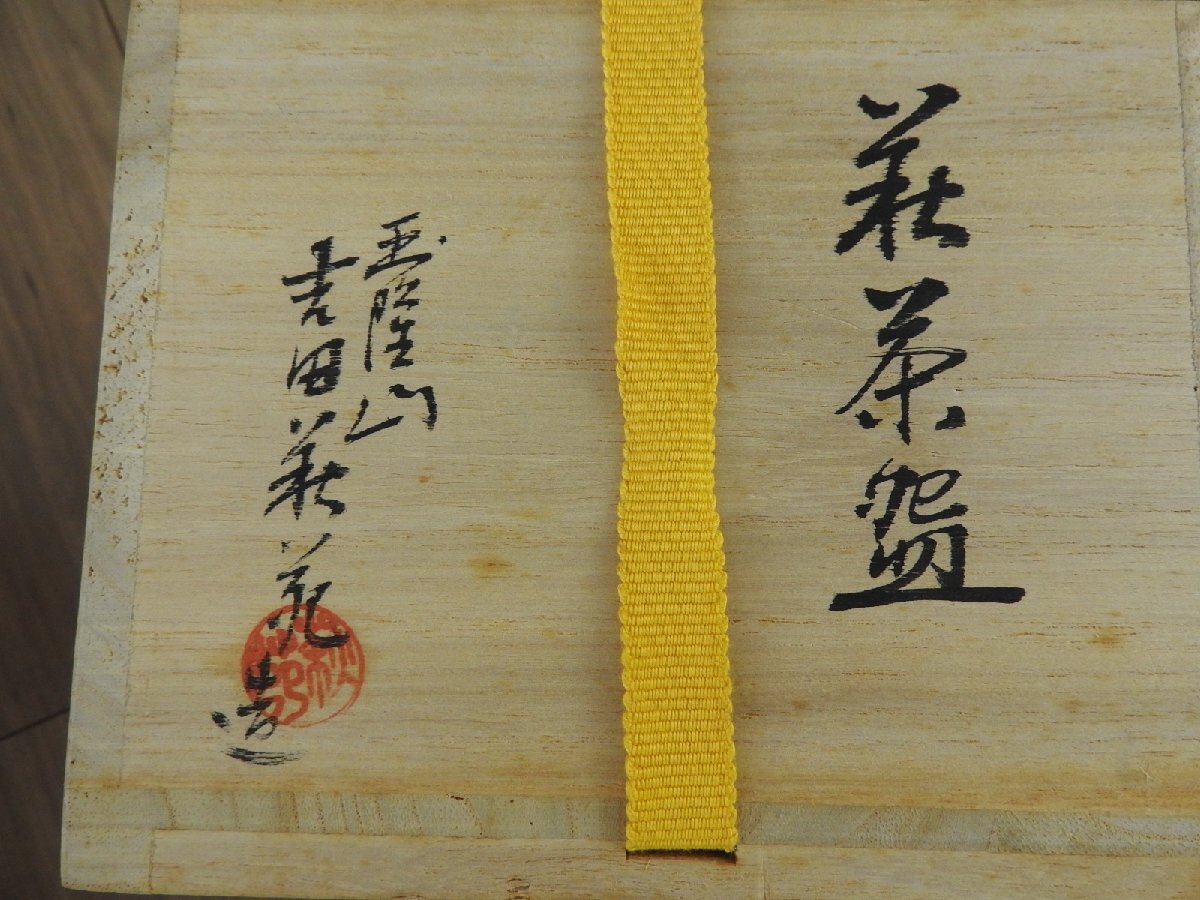 萩茶盌
玉隆山
吉田萩苑造